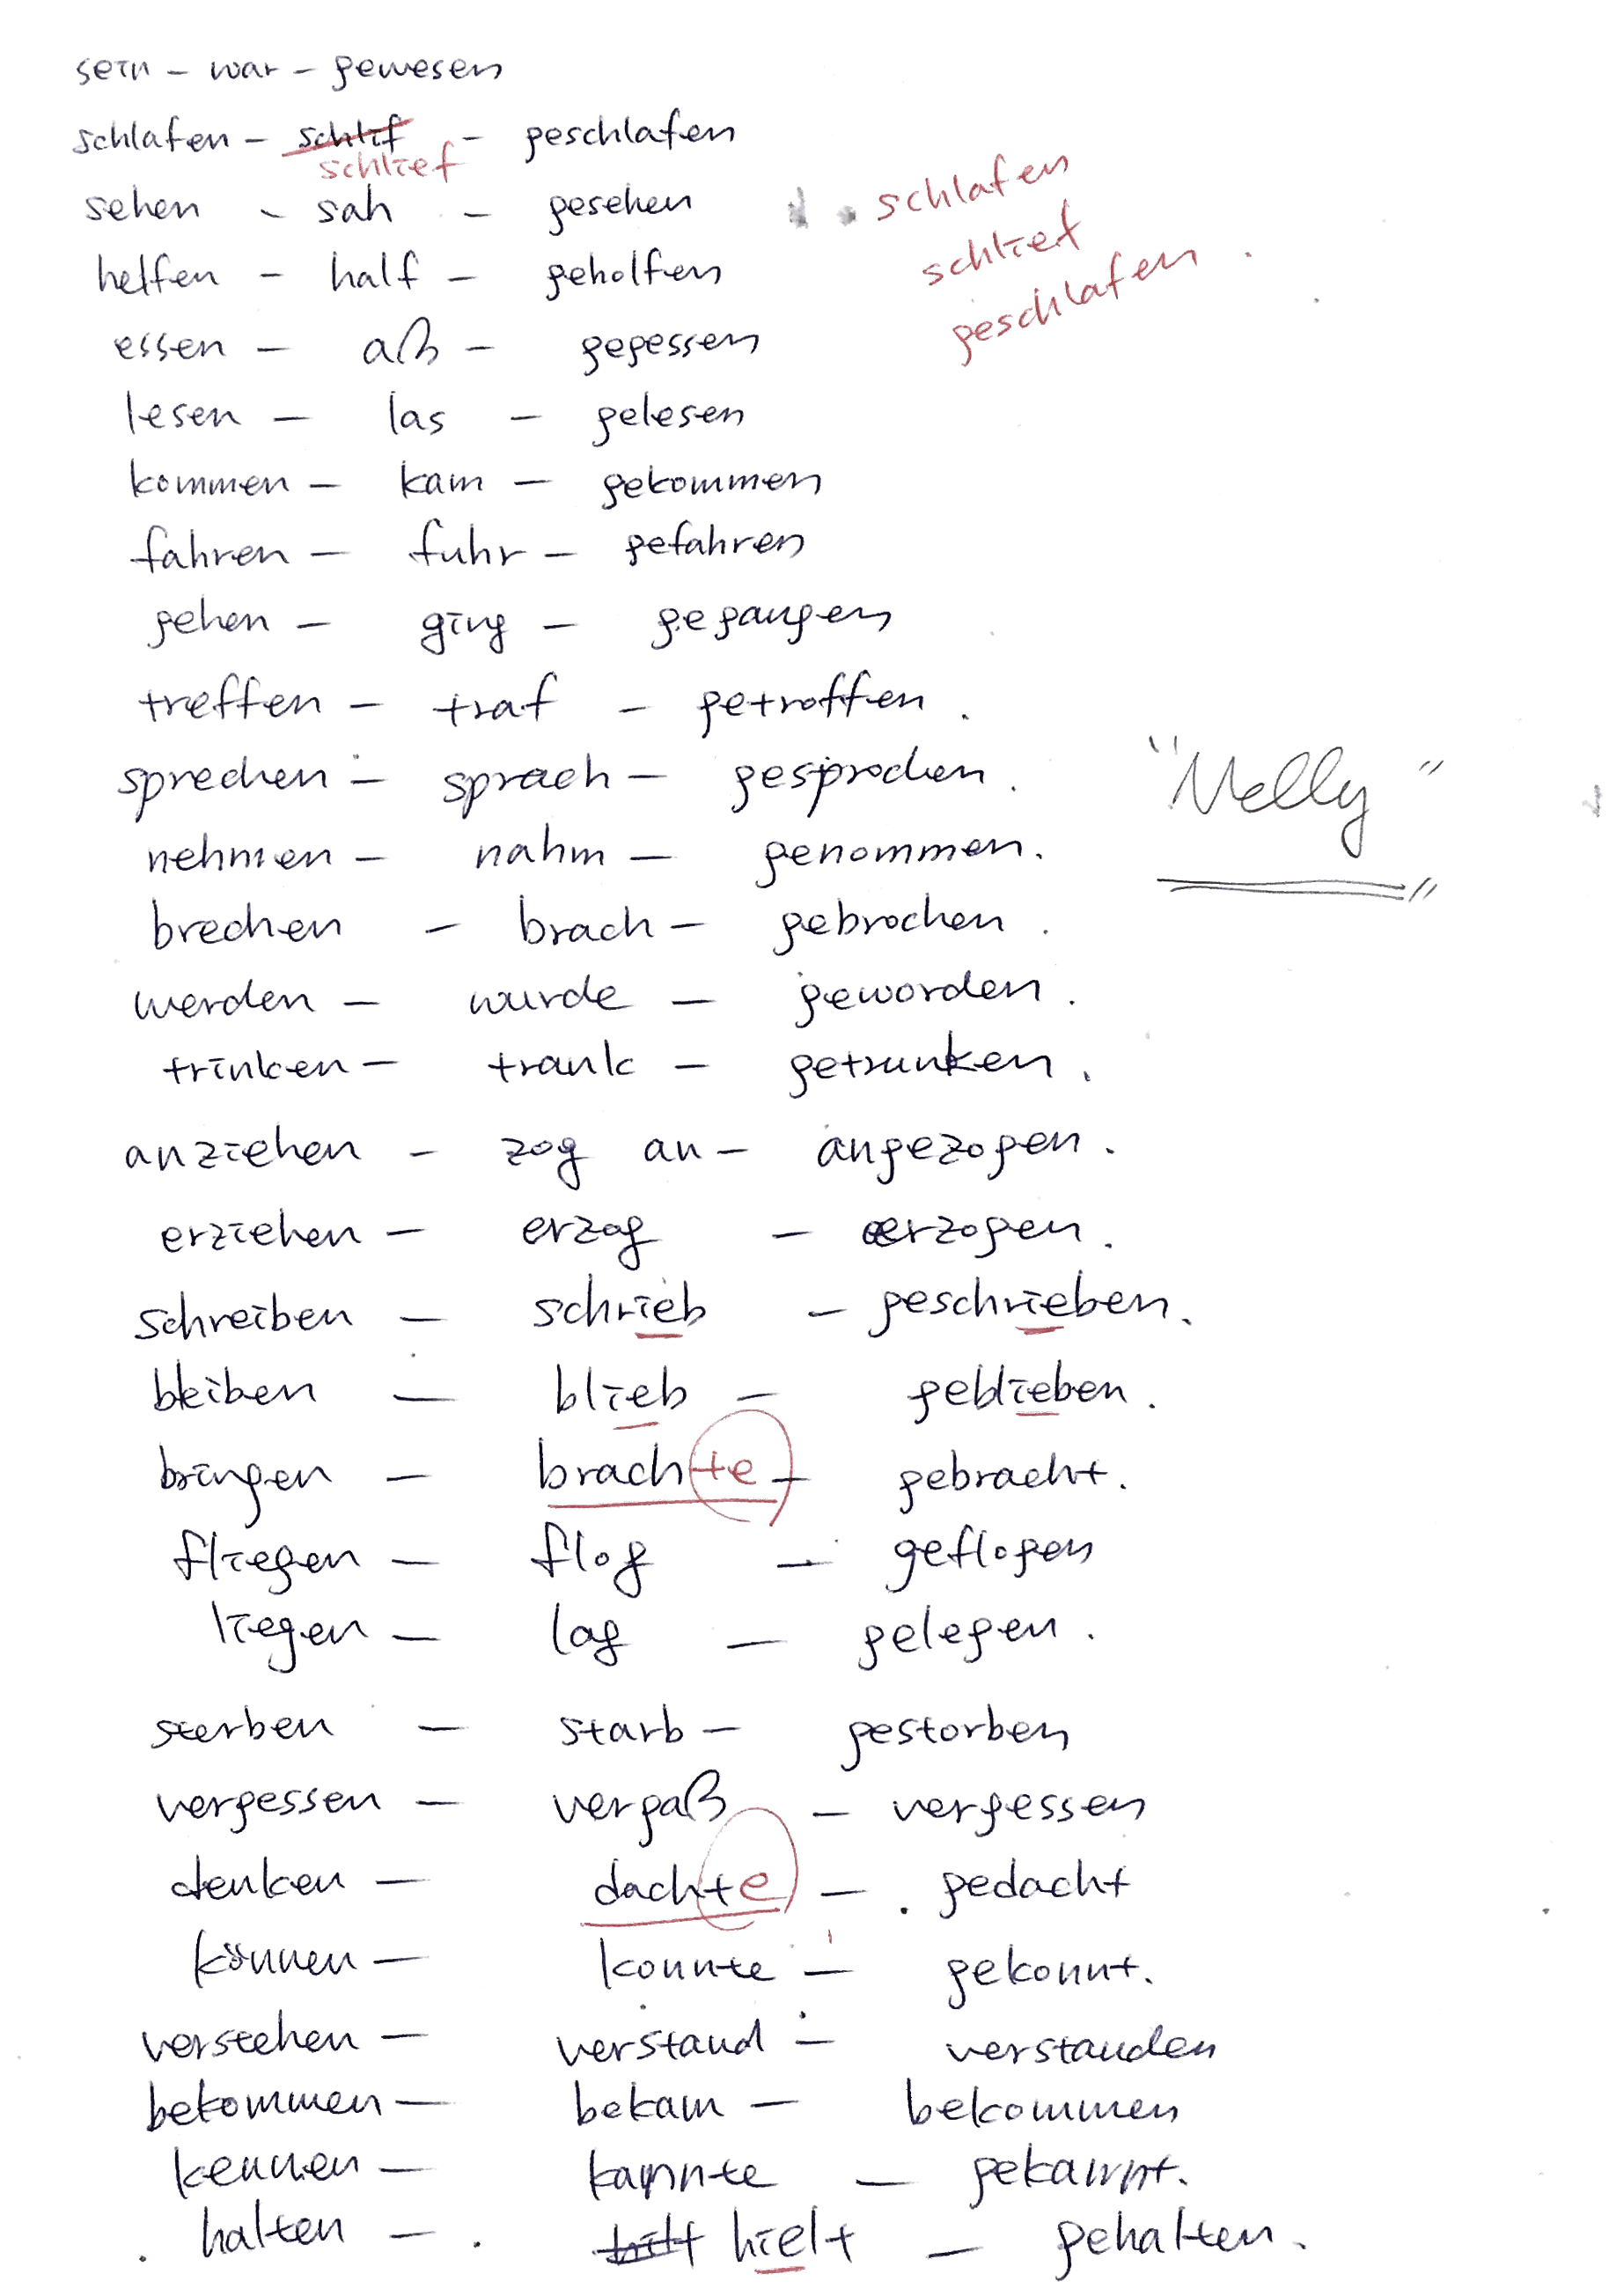 sein - war - gewesen
schlafen - schlif - geschlafen
schlief
sehen - sah - gesehen
schlafen
schlief
geschlafen.
helfen - half - geholfen
essen - aß - gegessen
lesen - las - gelesen
kommen - kam - gekommen
fahren - fuhr - gefahren
gehen - ging - gegangen
treffen - traf - getroffen.
sprechen - sprach - gesprochen.
"Melly"
nehmen - nahm - genommen.
brechen - brach - gebrochen.
werden - wurde - geworden.
trinken - trank - getrunken.
anziehen - zog an - angezogen.
erziehen - erzog - erzogen.
schreiben - schrieb - geschrieben.
bleiben - blieb - geblieben.
bringen - brachte - gebracht.
fliegen - flog - geflogen
liegen - lag - gelegen.
sterben - starb - gestorben
vergessen - vergaß - vergessen
denken - dachte - gedacht
können - konnte - gekonnt.
verstehen - verstand - verstanden
bekommen - bekam - bekommen
kennen - kannte - gekannt.
halten - hielt - gehalten.